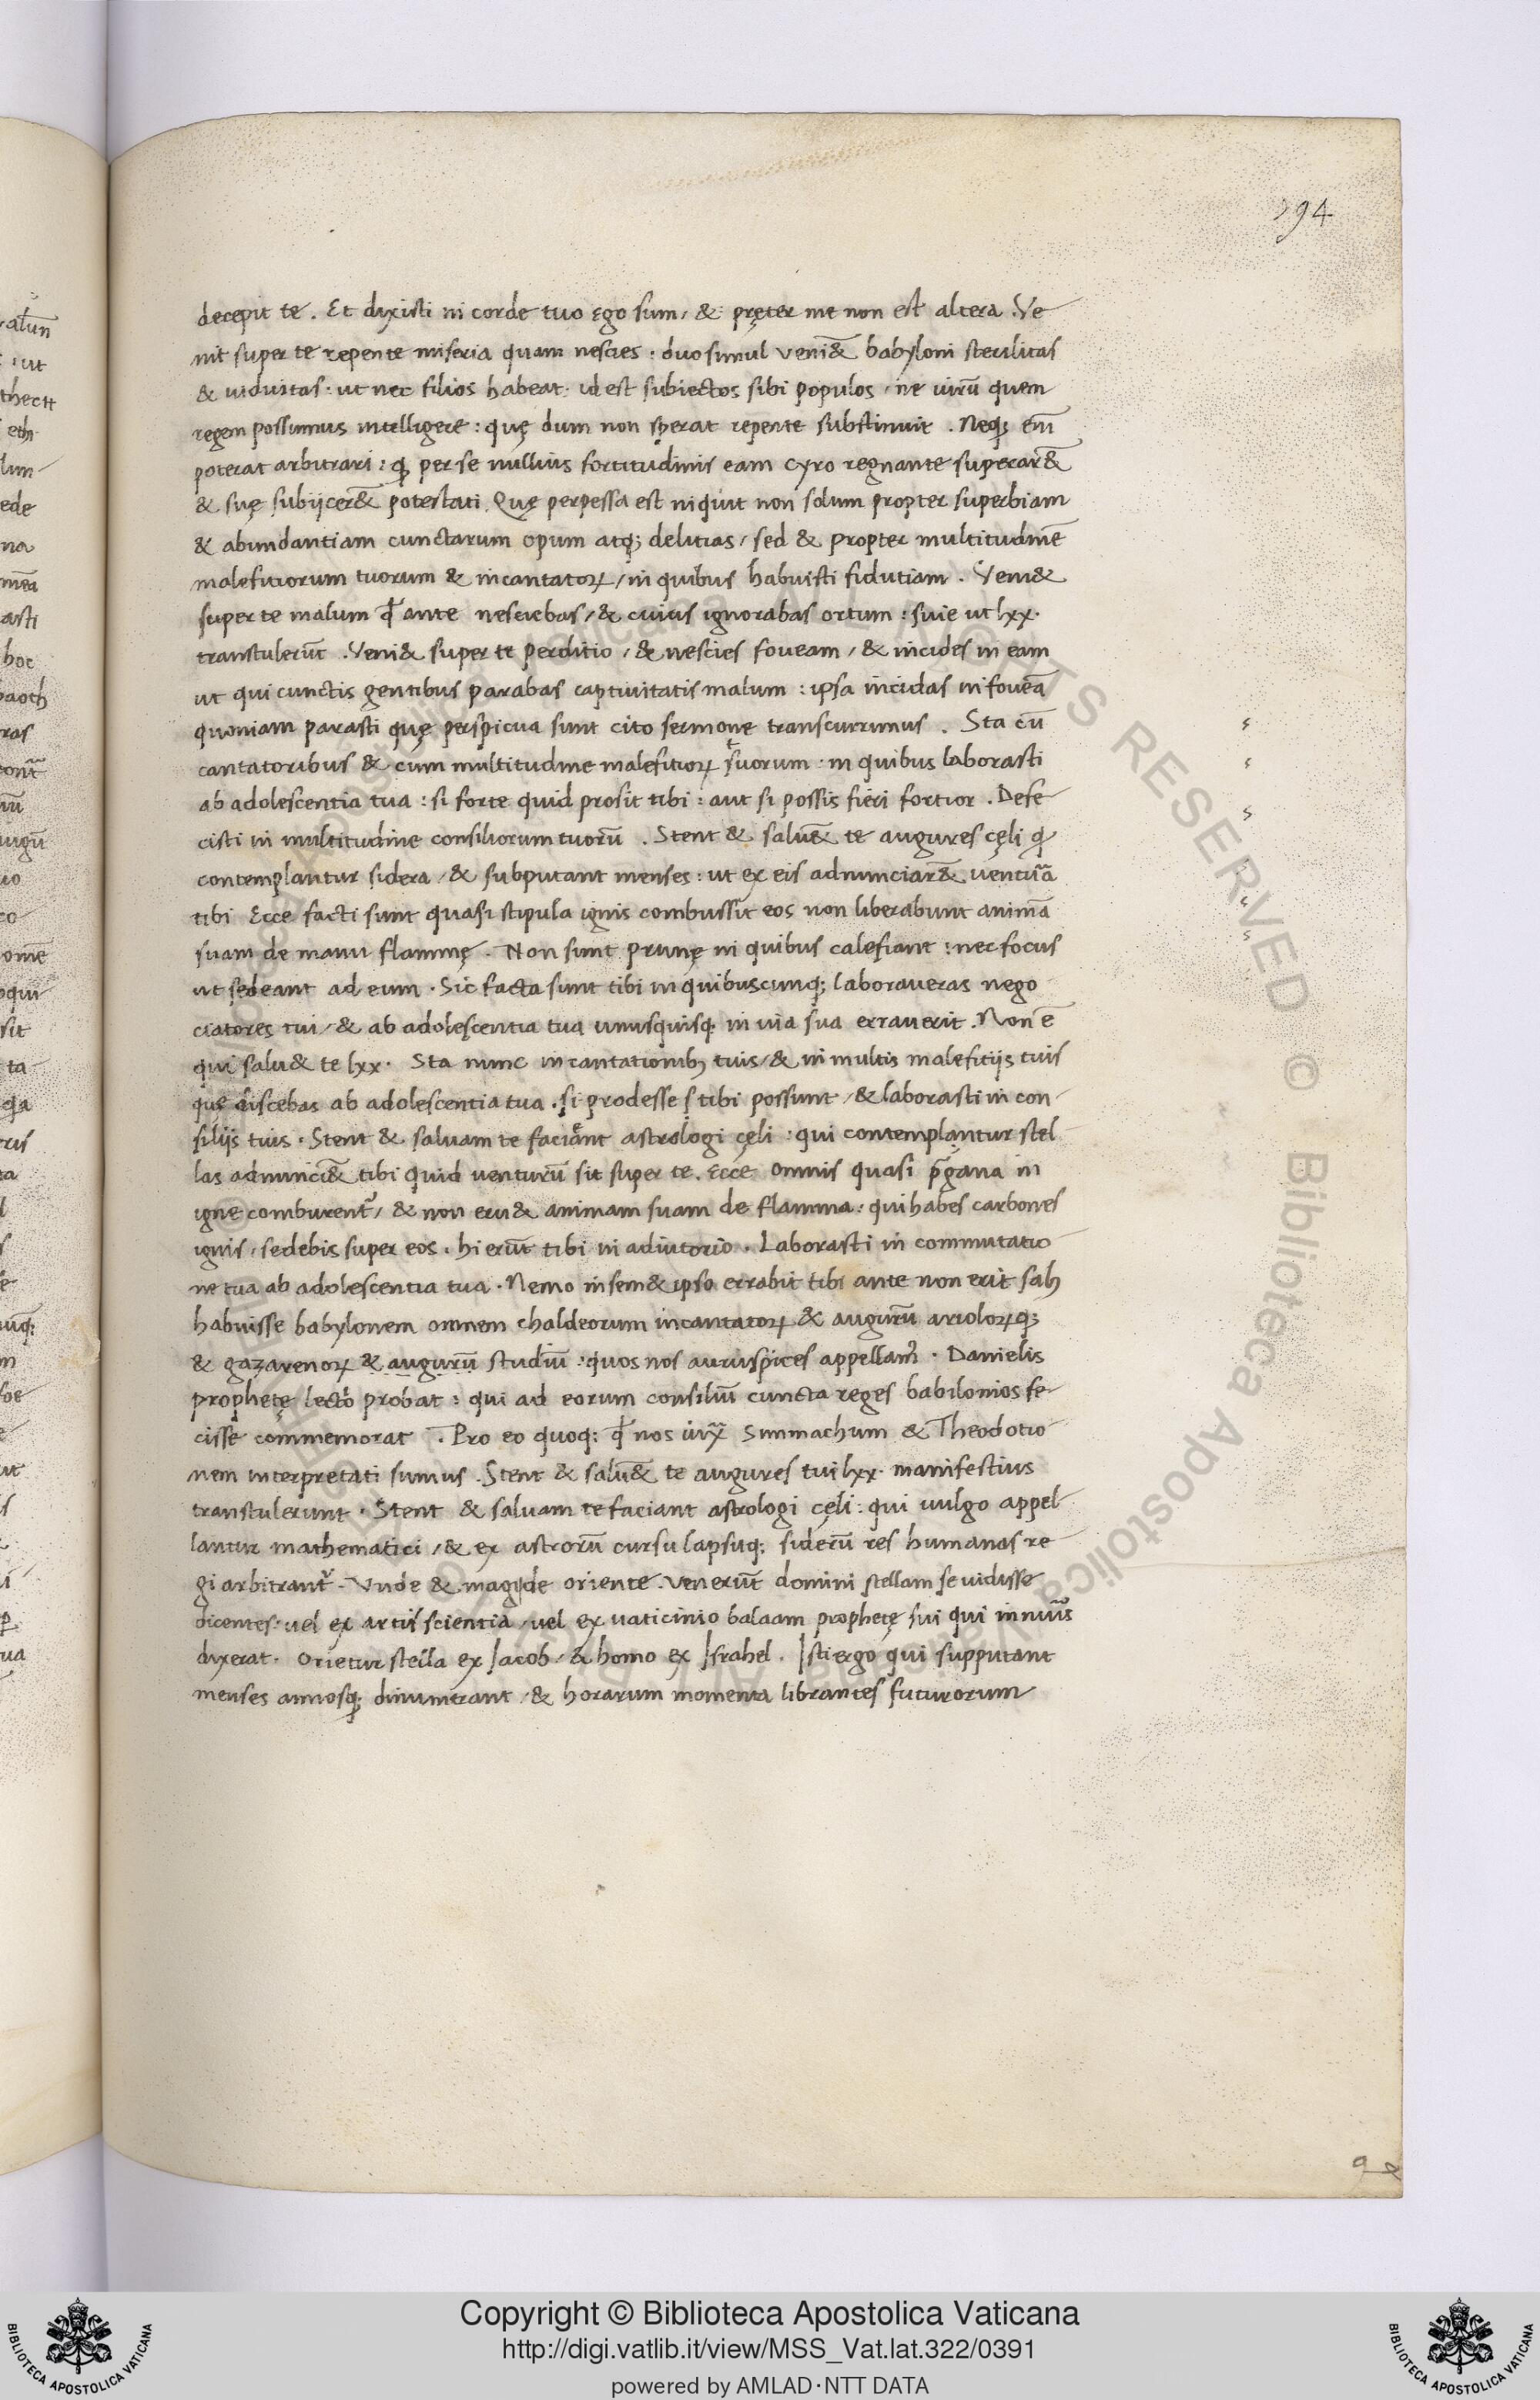 194
decepit te. Et dixisti in corde tuo ego sum, & pręter me non est altera. Ve
nit super te repente miseria quam nescies: duo simul veni&̄ babyloni sterilitas
& viduitas. ut nec filios habeat. id est subiectos sibi populos, ne virū quem
regem possimus intelligere: quę dum non sperat repente substinuit. Neq; em̄
poterat arbitrari: ꝙ per se nullius fortitudinis eam Cyro regnante superar&̄
& suę subijcer&̄ potestati. Quę perpessa est inquit non solum propter superbiam
& abundantiam cunctarum opum atq; delitias, sed & propter multitudinē
malefitiorum tuorum & incantatoꝝ, in quibus habuisti fidutiam. Veni&
super te malum ꝙ ante nesciebas, & cuius ignorabas ortum: sive ut lxx.
transtulerūt. Veni& super te perditio, & nescies foveam, & incides in eam
ut qui cunctis gentibus parabas captivitatis malum: ipsa incidas in foveā
quoniam parasti quę perspicua sunt cito sermone transcurrimus. Sta cū
cantatoribus & cum multitudine malefitioꝝ suorum. in quibus laborasti
t
ab adolescentia tua: si forte quid prosit tibi: aut si possis fieri fortior. Defe
cisti in multitudine consiliorum tuorū. Stent & salu&̄ te augures cęli ꝙ
contemplantur sidera, & subputant menses: ut ex eis adnunciar&̄ ventura
tibi Ecce facti sunt quasi stipula ignis combussit eos non liberabunt animā
suam de manu flammę. Non sunt prunę in quibus calefiant: nec focus
ut sedeant ad eum. Sic facta sunt tibi in quibuscunq; laboraveras nego
ciatores tui, & ab adolescentia tua unusquisq. in via sua erraverit. Non ē
qui salu& te lxx. Sta nunc in cantationibꝫ tuis, & in multis malefitijs tuis
quę discebas ab adolescentia tua. si prodesse tibi possunt, & laborasti in con
silijs tuis. Stent & salvam te faciant astrologi cęli: qui contemplantur stel
las adnunci&̄ tibi quid venturū sit super te. Ecce omnis quasi
in
igne comburent᷑, & non eru& animam suam de flamma: qui habes carbones
ignis, sedebis super eos. hi erūt tibi in adiutorio. Laborasti in commutatio
ne tua ab adolescentia tua. Nemo in sem& ipso errabit tibi ante non erit salꝫ
habuisse babylonem omnem chaldeorum incantatoꝝ & augurū arioloꝝq;
& gazarenoꝝ & augurū studiū: quos nos auruspices appellam᷒. Danielis
prophetę lectō probat: qui ad eorum consiliū cuncta reges babilonios fe
cisse commemorat. Pro eo quoq: ꝙ nos
Simmachum & Theodotio
nem interpretati sumus. Stent & salu&̄ te augures tui lxx. manifestius
transtulerunt. Stent & salvam te faciant astrologi cęli: qui vulgo appel
lantur mathematici, & ex astrorū cursu lapsuq; siderū res humanas re
gi arbitrant᷑. Unde & magi de oriente. venerūt domini stellam se vidisse
dicentes. vel ex artis scientia, vel ex vaticinio balaam prophetę sui qui in
dixerat. Orietur stella ex Jacob, & homo ex Israhel. Isti ergo qui supputant
menses annosq; dinumerant, & horarum momenta librantes futurorum
Copyright © Biblioteca Apostolica Vaticana
http://digi.vatlib.it/view/MSS_Vat.lat.322/0391
powered by AMLAD·NTT DATA
BIBLIOTECA APOSTOLICA VATICANA
BIBLIOTECA APOSTOLICA VATICANA